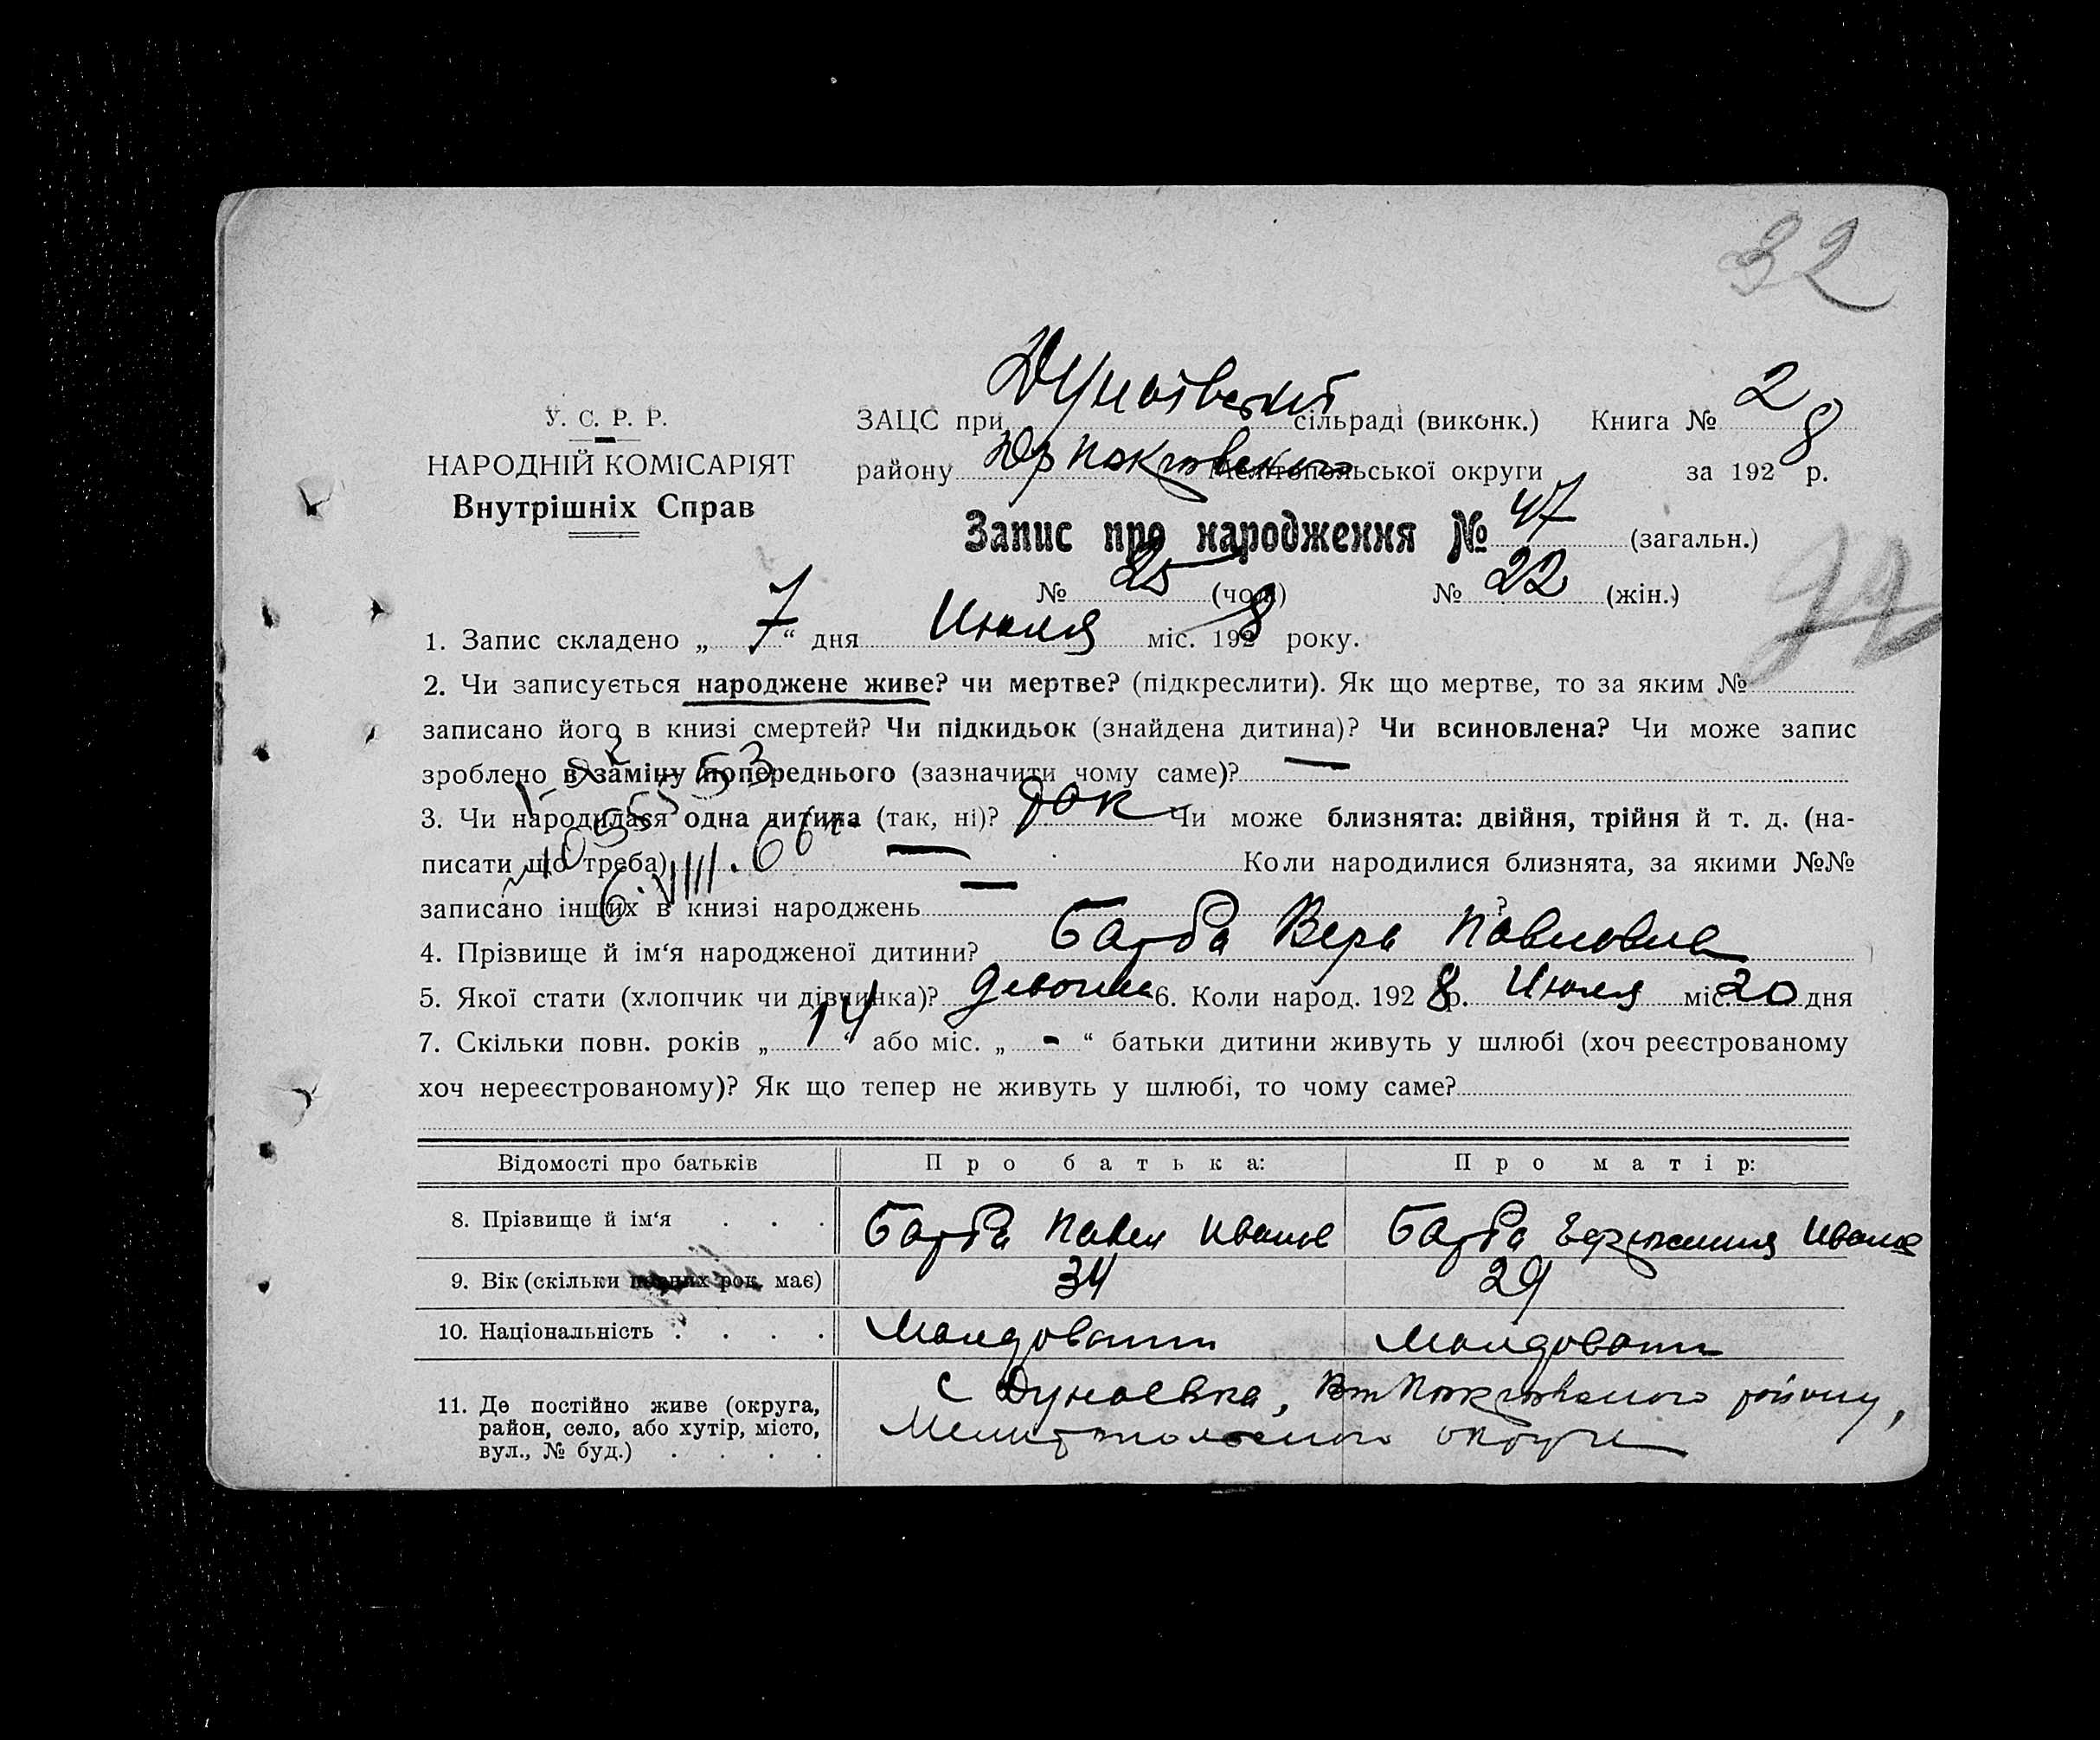 32
У. С. Р. Р.
НАРОДНІЙ КОМІСАРІЯТ
Внутрішніх Справ
ЗАЦС при сільраді (виконк.) Книга № 2
району Мелітопольської округи за 1928 р.
Запис про народження № 47 (загальн.)
№ 25 (чол.) № 22 (жін.)
1. Запис складено „ 7 “ дня Июля міс. 1928 року.
2. Чи записується народжене живе? чи мертве? (підкреслити). Як що мертве, то за яким №
записано його в книзі смертей? Чи підкидьок (знайдена дитина)? Чи всиновлена? Чи може запис
зроблено в заміну попереднього (зазначити чому саме)? —
3. Чи народилася одна дитина (так, ні)? Чи може близнята: двійня, трійня й т. д. (на-
писати що треба) — Коли народилися близнята, за якими №№
записано інших в книзі народжень — ?
4. Прізвище й ім‘я народженої дитини? Барба Вера Павловна
5. Якої стати (хлопчик чи дівчинка)? девочка 6. Коли народ. 1928 р. Июля міс. 20 дня
7. Скільки повн. років „ 14 “ або міс. „ - “ батьки дитини живуть у шлюбі (хоч реєстрованому
хоч нереєстрованому)? Як що тепер не живуть у шлюбі, то чому саме?
Відомості про батьків Про батька: Про матір:
8. Прізвище й ім‘я . . . Барба Павел Иванов Барба Иванов
9. Вік (скільки повних рок. має) 34 29
10. Національність . . . . Молдован Молдован
11. Де постійно живе (округа, с Дунаевка, району,
район, село, або хутір, місто, Мелитопольского округи
вул., № буд.) . . . .